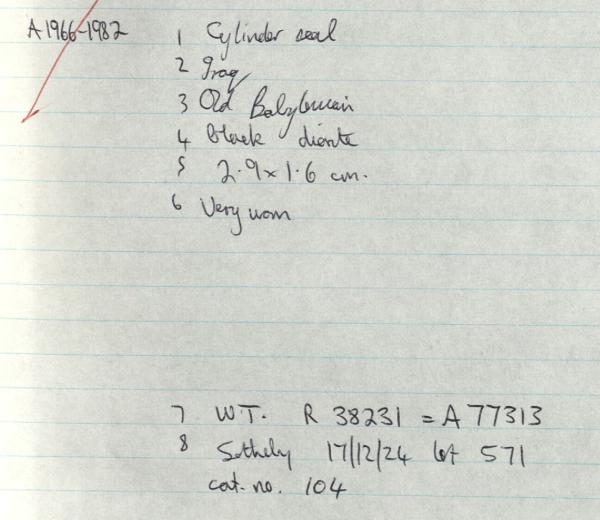 A1966-1982 1 Cylinder seal
2 Iraq
3 Old Balylonian
4 black diorite
5 2.9 x 1.6 cm.
6 Very worn
7 W.T. R 38231 = A 77313
8 Sotheby 17/12/24 lot 571
cat. no. 104